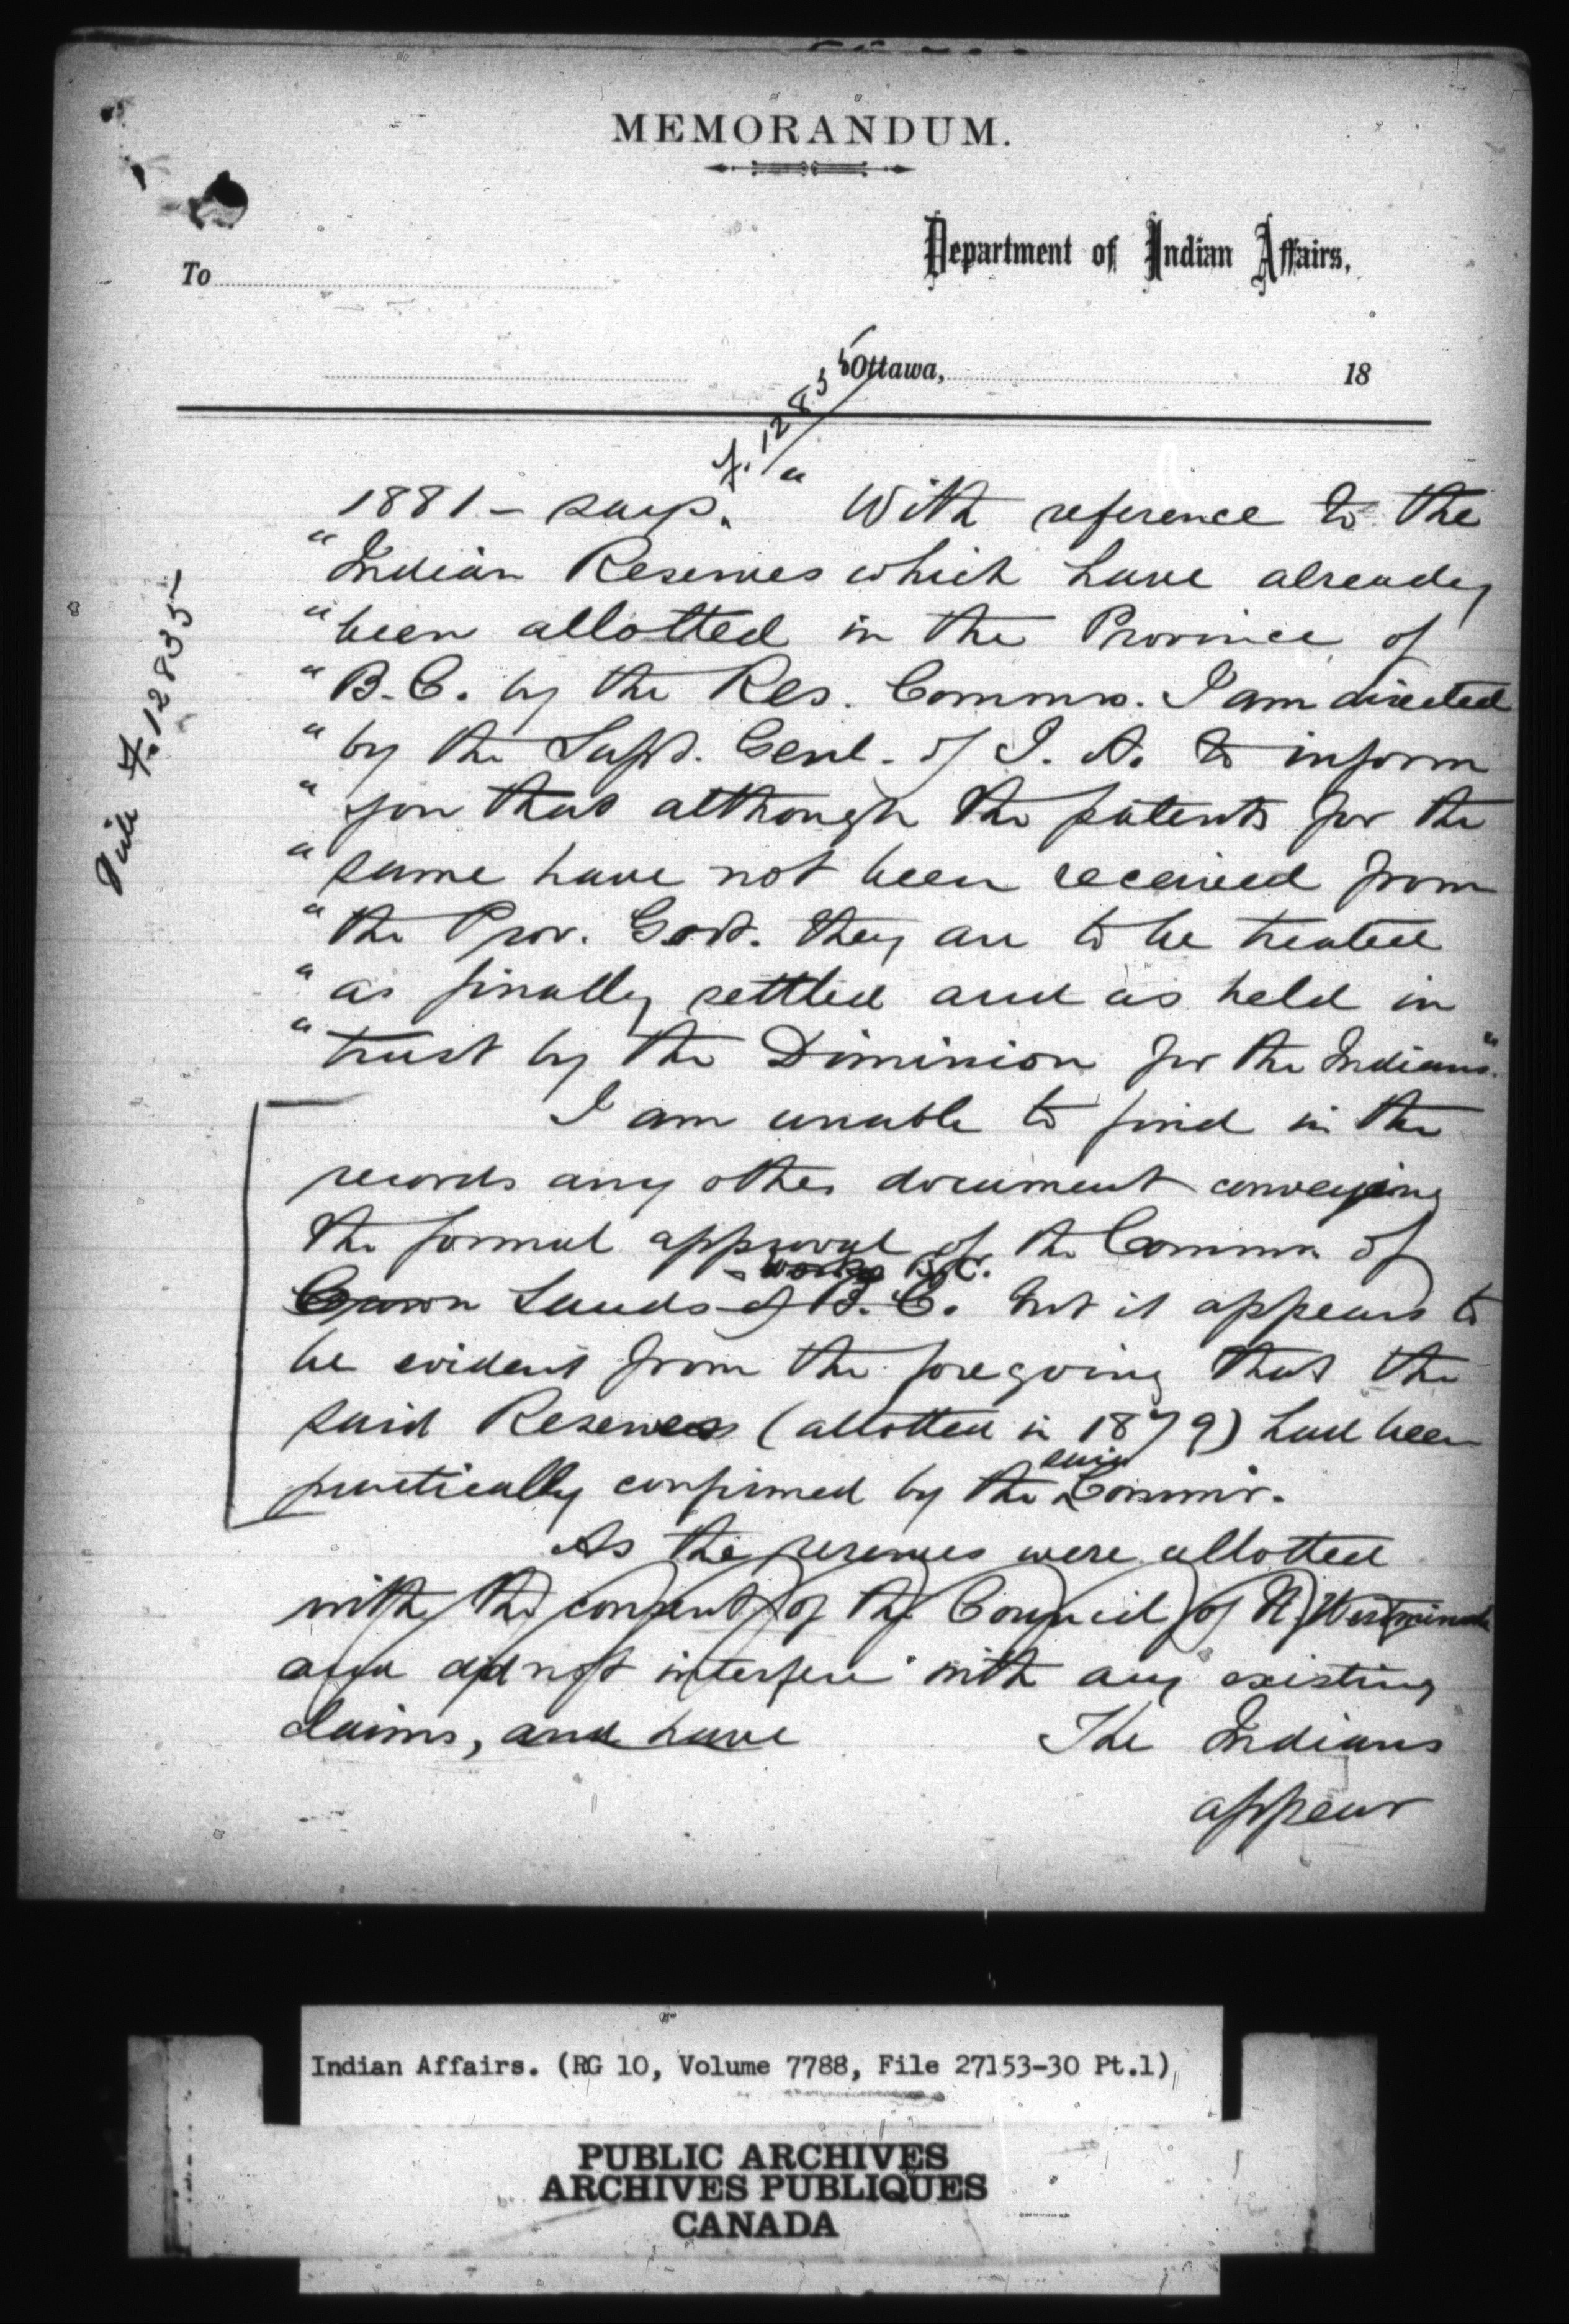 MEMORANDUM.
Department of Indian Affairs,
To
Ottawa, 18
f. 12835
1881 – says. " With reference to the
" Indian Reserves which have already
" been allotted in the Province of
" B.C. by the Res. Commrs. I am directed
" by the Supt. Genl. of I. A. to inform
" you that although the patents for the
" same have not been received from
" the Prov. Govt. they are to be treated
" as finally settled and as held in
" trust by the Dominion for the Indians."
I am unable to find in the
records any other document conveying
the formal approval of the Commr. of
works B.C.
Crown Lands of B.C. but it appears to
be evident from the foregoing that the
said Reserves (allotted in 1879) had been
said
practically confirmed by the Commr.
As the reserves were allotted
with the consent of the Council of N. Westminster
and did not interfere with any existing
claims, and have The Indians
appear
File f. 12835
Indian Affairs. (RG 10, Volume 7788, File 27153-30 Pt.1)
PUBLIC ARCHIVES
ARCHIVES PUBLIQUES
CANADA